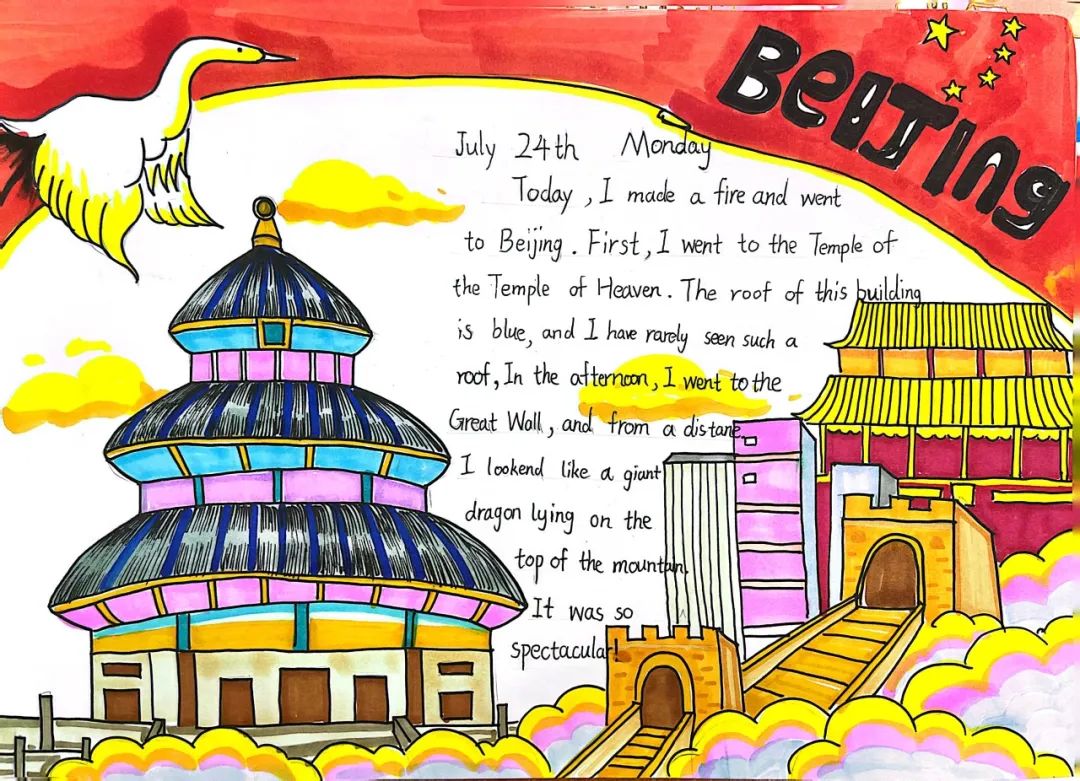 BeIJIng
July 24th Monday
Today , I made a fire and went
to Beijing . First , I went to the Temple of
the Temple of Heaven . The roof of this building
is blue, and I have rarely seen such a
roof, In the afternoon, I went to the
Great Wall, and from a distane,
I lookend like a giant
dragon lying on the
top of the mountain.
It was so
spectacular!